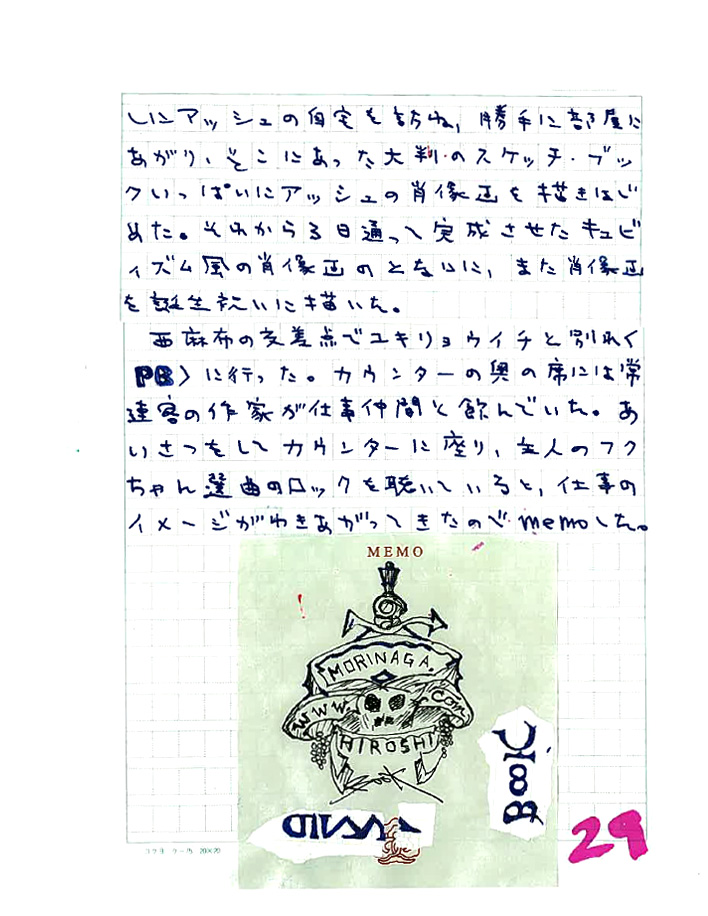 しにアッシュの自宅を訪ね，勝手に部屋に
あがり、そこにあった大判のスケッチ・ブッ
クいっぱいにアッシュの肖像画を描きはじ
めた。それから3日通って完成させたキュビ
ィズム風の肖像画のとなりに，また肖像画
を誕生祝いに描いた。
西麻布の交差点でユキリョウイチと別れく
PB〉に行った。カウンターの奥の席には常
連客の作家が仕事仲間と飲んでいた。あ
いさつをしてカウンターに座り、主人のフク
ちゃん選曲のロックを聴いていると，仕事の
イメージがわきあがってきたのでmemoした。
MEMO
MORINAGA.
WWW
.com
HIROSHI
Book
コクヨ ケー75 20×20
29